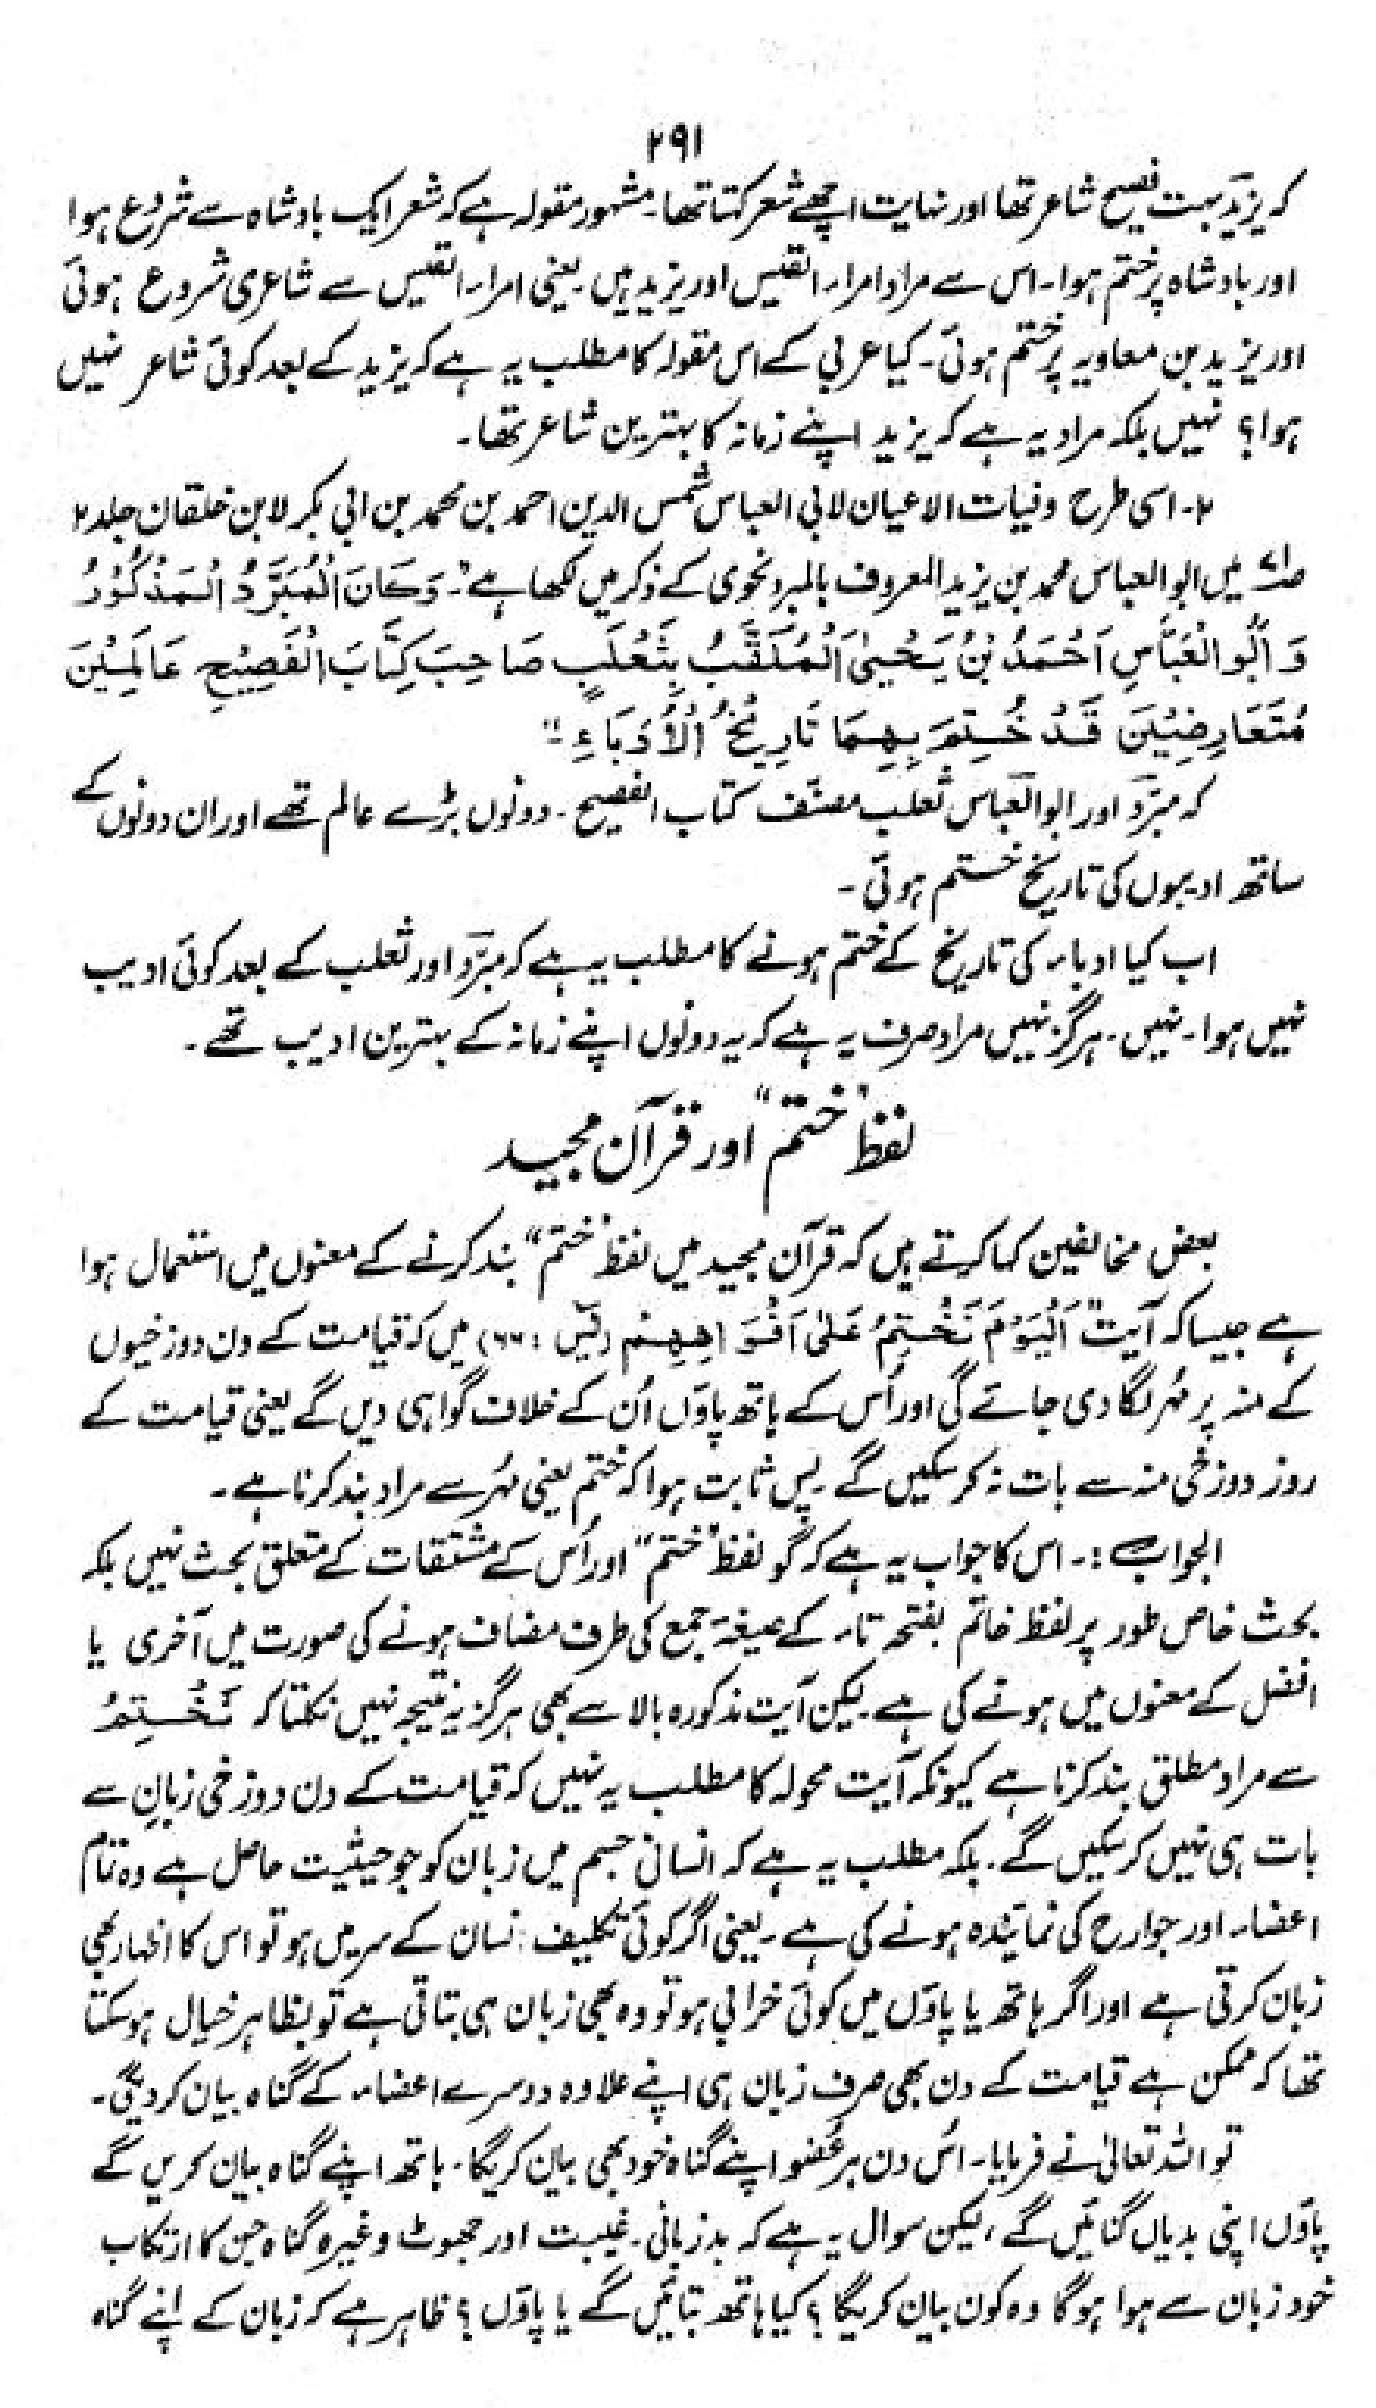 ۲۹۱
کہ یزید بہت فصیح شاعر تھا اور نہایت اچھے شعر کہتا تھا۔ مشہور مقولہ ہے کہ شعر ایک بادشاہ سے شروع ہوا
اور بادشاہ پر ختم ہوا۔ اس سے مراد امراء القیس اور یزید ہیں۔ یعنی امراء القیس سے شاعری شروع ہوئی
اور یزید بن معاویہ پر ختم ہوئی۔ کیا عربی کے اس مقولہ کا مطلب یہ ہے کہ یزید کے بعد کوئی شاعر نہیں
ہوا؟ نہیں بلکہ مراد یہ ہے کہ یزید اپنے زمانہ کا بہترین شاعر تھا۔
۲۔ اسی طرح وفیات الاعیان لابی العباس شمس الدین احمد بن محمد بن ابی بکر لابن خلقان جلد ۲
میں ابوالعباس محمد بن یزید المعروف بالمبرد نحوی کے ذکر میں لکھا ہے "۔ وَكَانَ الْمُبَرَّدُ الْمَذْكُوْرُ
وَ اَبُو الْعَبَّاسِ اَحْمَدُ بْنُ يَحْيىٰ الْمُلَقَّبُ بِثَعْلَبٍ صَاحِبَ كِتَابَ الْفَصِيْحِ عَالِمِيْنَ
مُتَعَارِضِيْنَ قَدْ خُتِمَ بِهِمَا تَارِيْخُ الْاُدَبَاءِ۔"
کہ مبرّد اور ابوالعباس ثعلب مصنف کتاب الفصیح۔ دونوں بڑے عالم تھے اور ان دونوں کے
ساتھ ادیبوں کی تاریخ ختم ہوئی۔
اب کیا ادباء کی تاریخ کے ختم ہونے کا مطلب یہ ہے کہ مبرّد اور ثعلب کے بعد کوئی ادیب
نہیں ہوا۔ نہیں۔ ہرگز نہیں مراد صرف یہ ہے کہ یہ دونوں اپنے زمانہ کے بہترین ادیب تھے۔
لفظ "ختم" اور قرآن مجید
بعض مخالفین کہا کرتے ہیں کہ قرآن مجید میں لفظ "ختم" بند کرنے کے معنوں میں استعمال ہوا
ہے جیسا کہ آیت "اَلْيَوْمَ نَخْتِمُ عَلىٰ اَفْوَاهِهِمْ (یٰسٓ : ۶۶) میں کہ قیامت کے دن دوزخیوں
کے منہ پر مُہر لگا دی جائے گی اور اُس کے ہاتھ پاؤں اُن کے خلاف گواہی دیں گے یعنی قیامت کے
روز دوزخی منہ سے بات نہ کر سکیں گے۔ پس ثابت ہوا کہ ختم یعنی مُہر سے مراد بند کرنا ہے۔
الجواب:۔ اس کا جواب یہ ہے کہ گو لفظ "ختم" اور اُس کے مشتقات کے متعلق بحث نہیں بلکہ
بحث خاص طور پر لفظ خاتم بفتحہ تاء کے صیغہ جمع کی طرف مضاف ہونے کی صورت میں آخری یا
افضل کے معنوں میں ہونے کی ہے۔ لیکن آیت مذکورہ بالا سے بھی ہرگز یہ نتیجہ نہیں نکلتا کہ نَخْتِمُ
سے مراد مطلق بند کرنا ہے کیونکہ آیت محولہ کا مطلب یہ نہیں کہ قیامت کے دن دوزخی زبان سے
بات ہی نہیں کر سکیں گے۔ بلکہ مطلب یہ ہے کہ انسانی جسم میں زبان کو جو حیثیت حاصل ہے وہ تمام
اعضاء اور جوارح کی نمائندہ ہونے کی ہے۔ یعنی اگر کوئی تکلیف انسان کے سر میں ہو تو اس کا اظہار بھی
زبان کرتی ہے اور اگر ہاتھ یا پاؤں میں کوئی خرابی ہو تو وہ بھی زبان ہی بتاتی ہے تو بظاہر خیال ہو سکتا
تھا کہ ممکن ہے قیامت کے دن بھی صرف زبان ہی اپنے علاوہ دوسرے اعضاء کے گناہ بیان کر دیگی۔
تو اللہ تعالیٰ نے فرمایا۔ اُس دن ہر عُضو اپنے گناہ خود بھی بیان کریگا۔ ہاتھ اپنے گناہ بیان کریں گے
پاؤں اپنی بدیاں گنائیں گے، لیکن سوال یہ ہے کہ بدزبانی۔ غیبت اور جھوٹ وغیرہ گناہ جن کا ارتکاب
خود زبان سے ہوا ہوگا وہ کون بیان کریگا؟ کیا ہاتھ بتائیں گے یا پاؤں؟ ظاہر ہے کہ زبان کے اپنے گناہ